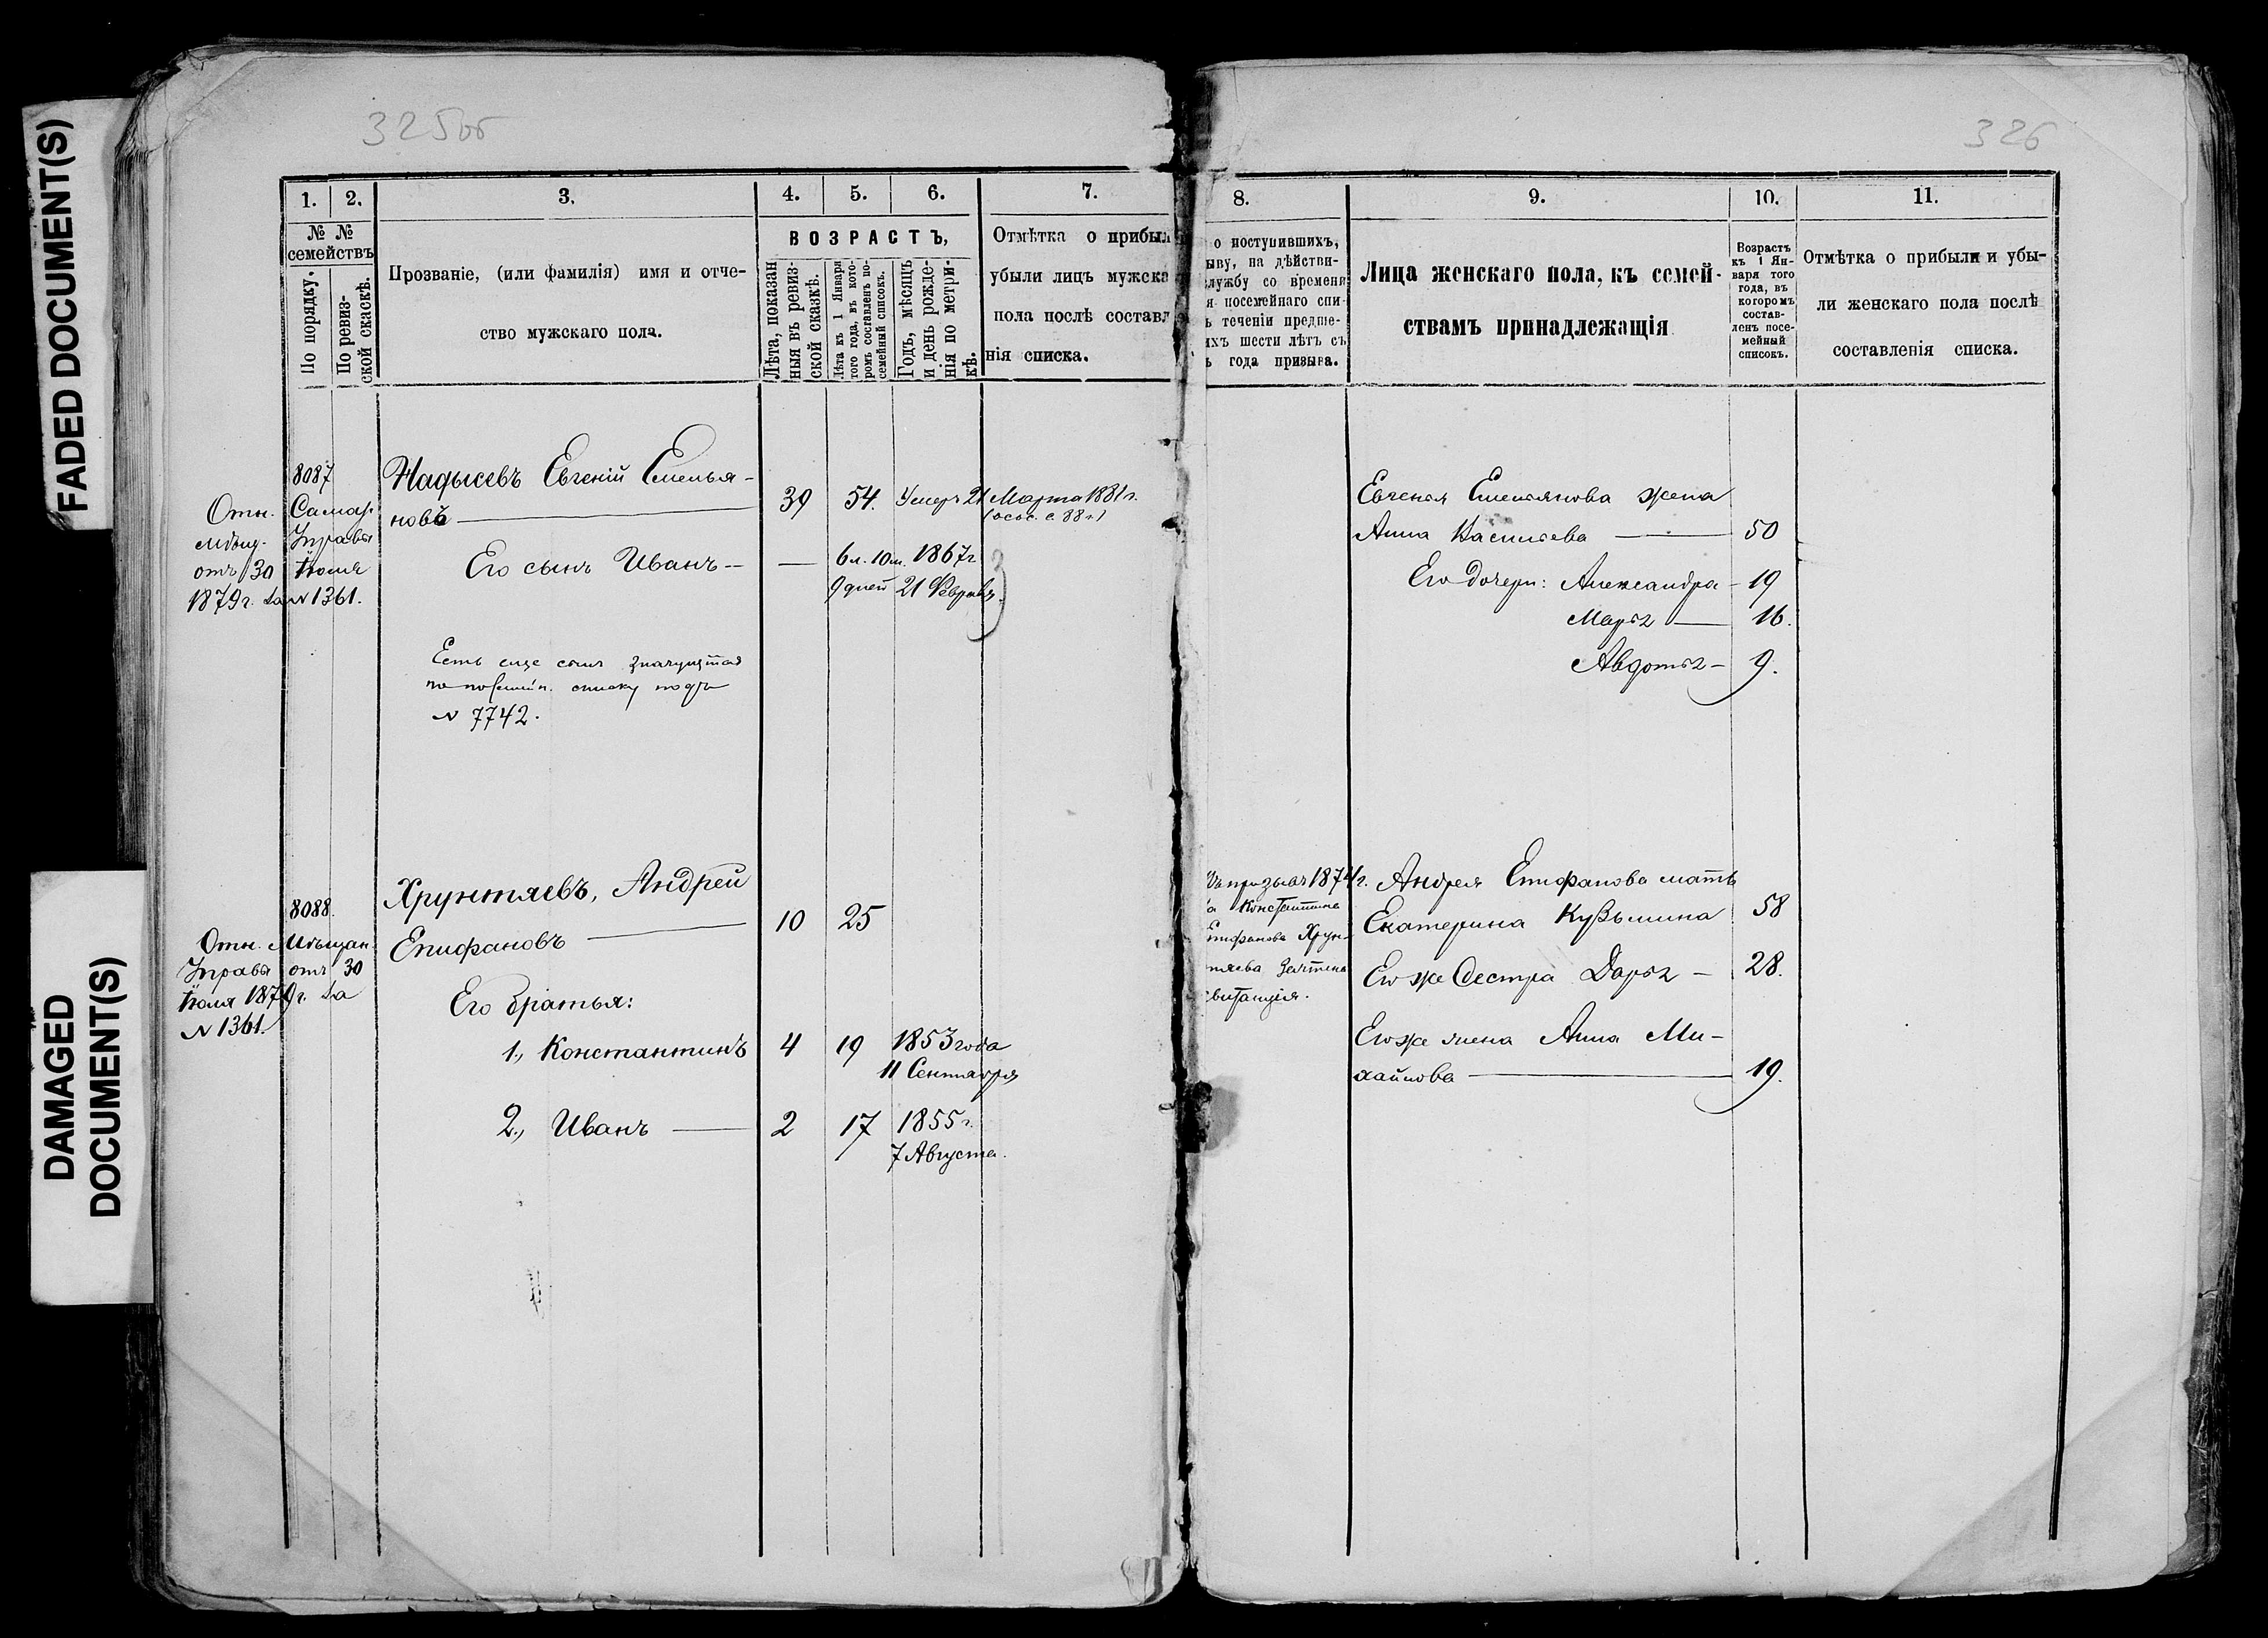 FADED DOCUMENT(S)
DAMAGED
DOCUMENT(S)
325об
1. 2. 3. 4. 5. 6. 7.
№ №
семействъ
По порядку.
По ревиз-
ской скаскѣ.
Прозваніе, (или фамилія) имя и отче-
ство мужскаго пола.
ВОЗРАСТЪ,
Лѣта, показан
ныя въ ревиз-
ской сказкѣ.
Лѣта къ 1 Января
того года, въ кото-
ромъ составленъ по-
семейный списокъ.
Годъ, мѣсяцъ
и день рожде-
нія по метри-
кѣ.
Отмѣтка о прибыл
убыли лицъ мужска
пола послѣ составл
нія списка.
8087
Надысевъ Евгеній Емелья-
новъ
39 54. Умеръ 21 Марта 1881 г.
Отн. Самар.
мѣщ. Управы
отъ 30 Іюля
1879 г. за № 1361.
Его сынъ Иванъ — 6 л. 10 м. 1867 г.
9 дней 21 Февраля.
Есть еще сынъ значущійся
по посемейн. списку подъ
№ 7742.
8088.
Хрунтяевъ, Андрей
Епифановъ 10 25
Отн. Мѣщан.
Управы отъ 30
Іюля 1879 г. за
№ 1361.
Его братья:
1., Константинъ 4 19 1853 года
11 Сентября
2., Иванъ 2 17 1855 г.
7 Августа.
326
8. 9. 10. 11.
о поступившихъ,
ыву, на дѣйстви-
службу со времени
я посемейнаго спи-
ъ теченіи предше-
ихъ шести лѣтъ съ
ъ года призыва.
Лица женскаго пола, къ семей-
ствамъ принадлежащія
Возрастъ
къ 1 Ян-
варя того
года, въ
которомъ
состав-
ленъ посе-
мейный
списокъ.
Отмѣтка о прибыли и убы-
ли женскаго пола послѣ
составленія списка.
Евгенія Емельянова жена
Анна Васильева — 50
Его дочери: Александра — 19
Марья — 16.
Авдотья — 9.
Въ призывъ 1874 г.
а Константина
Епифанова Хрун-
тяева зачтена
квитанція.
Андрея Епифанова мать
Екатерина Кузьмина 58
Его же сестра Дарья — 28.
Его же жена Анна Ми-
хайлова — 19.